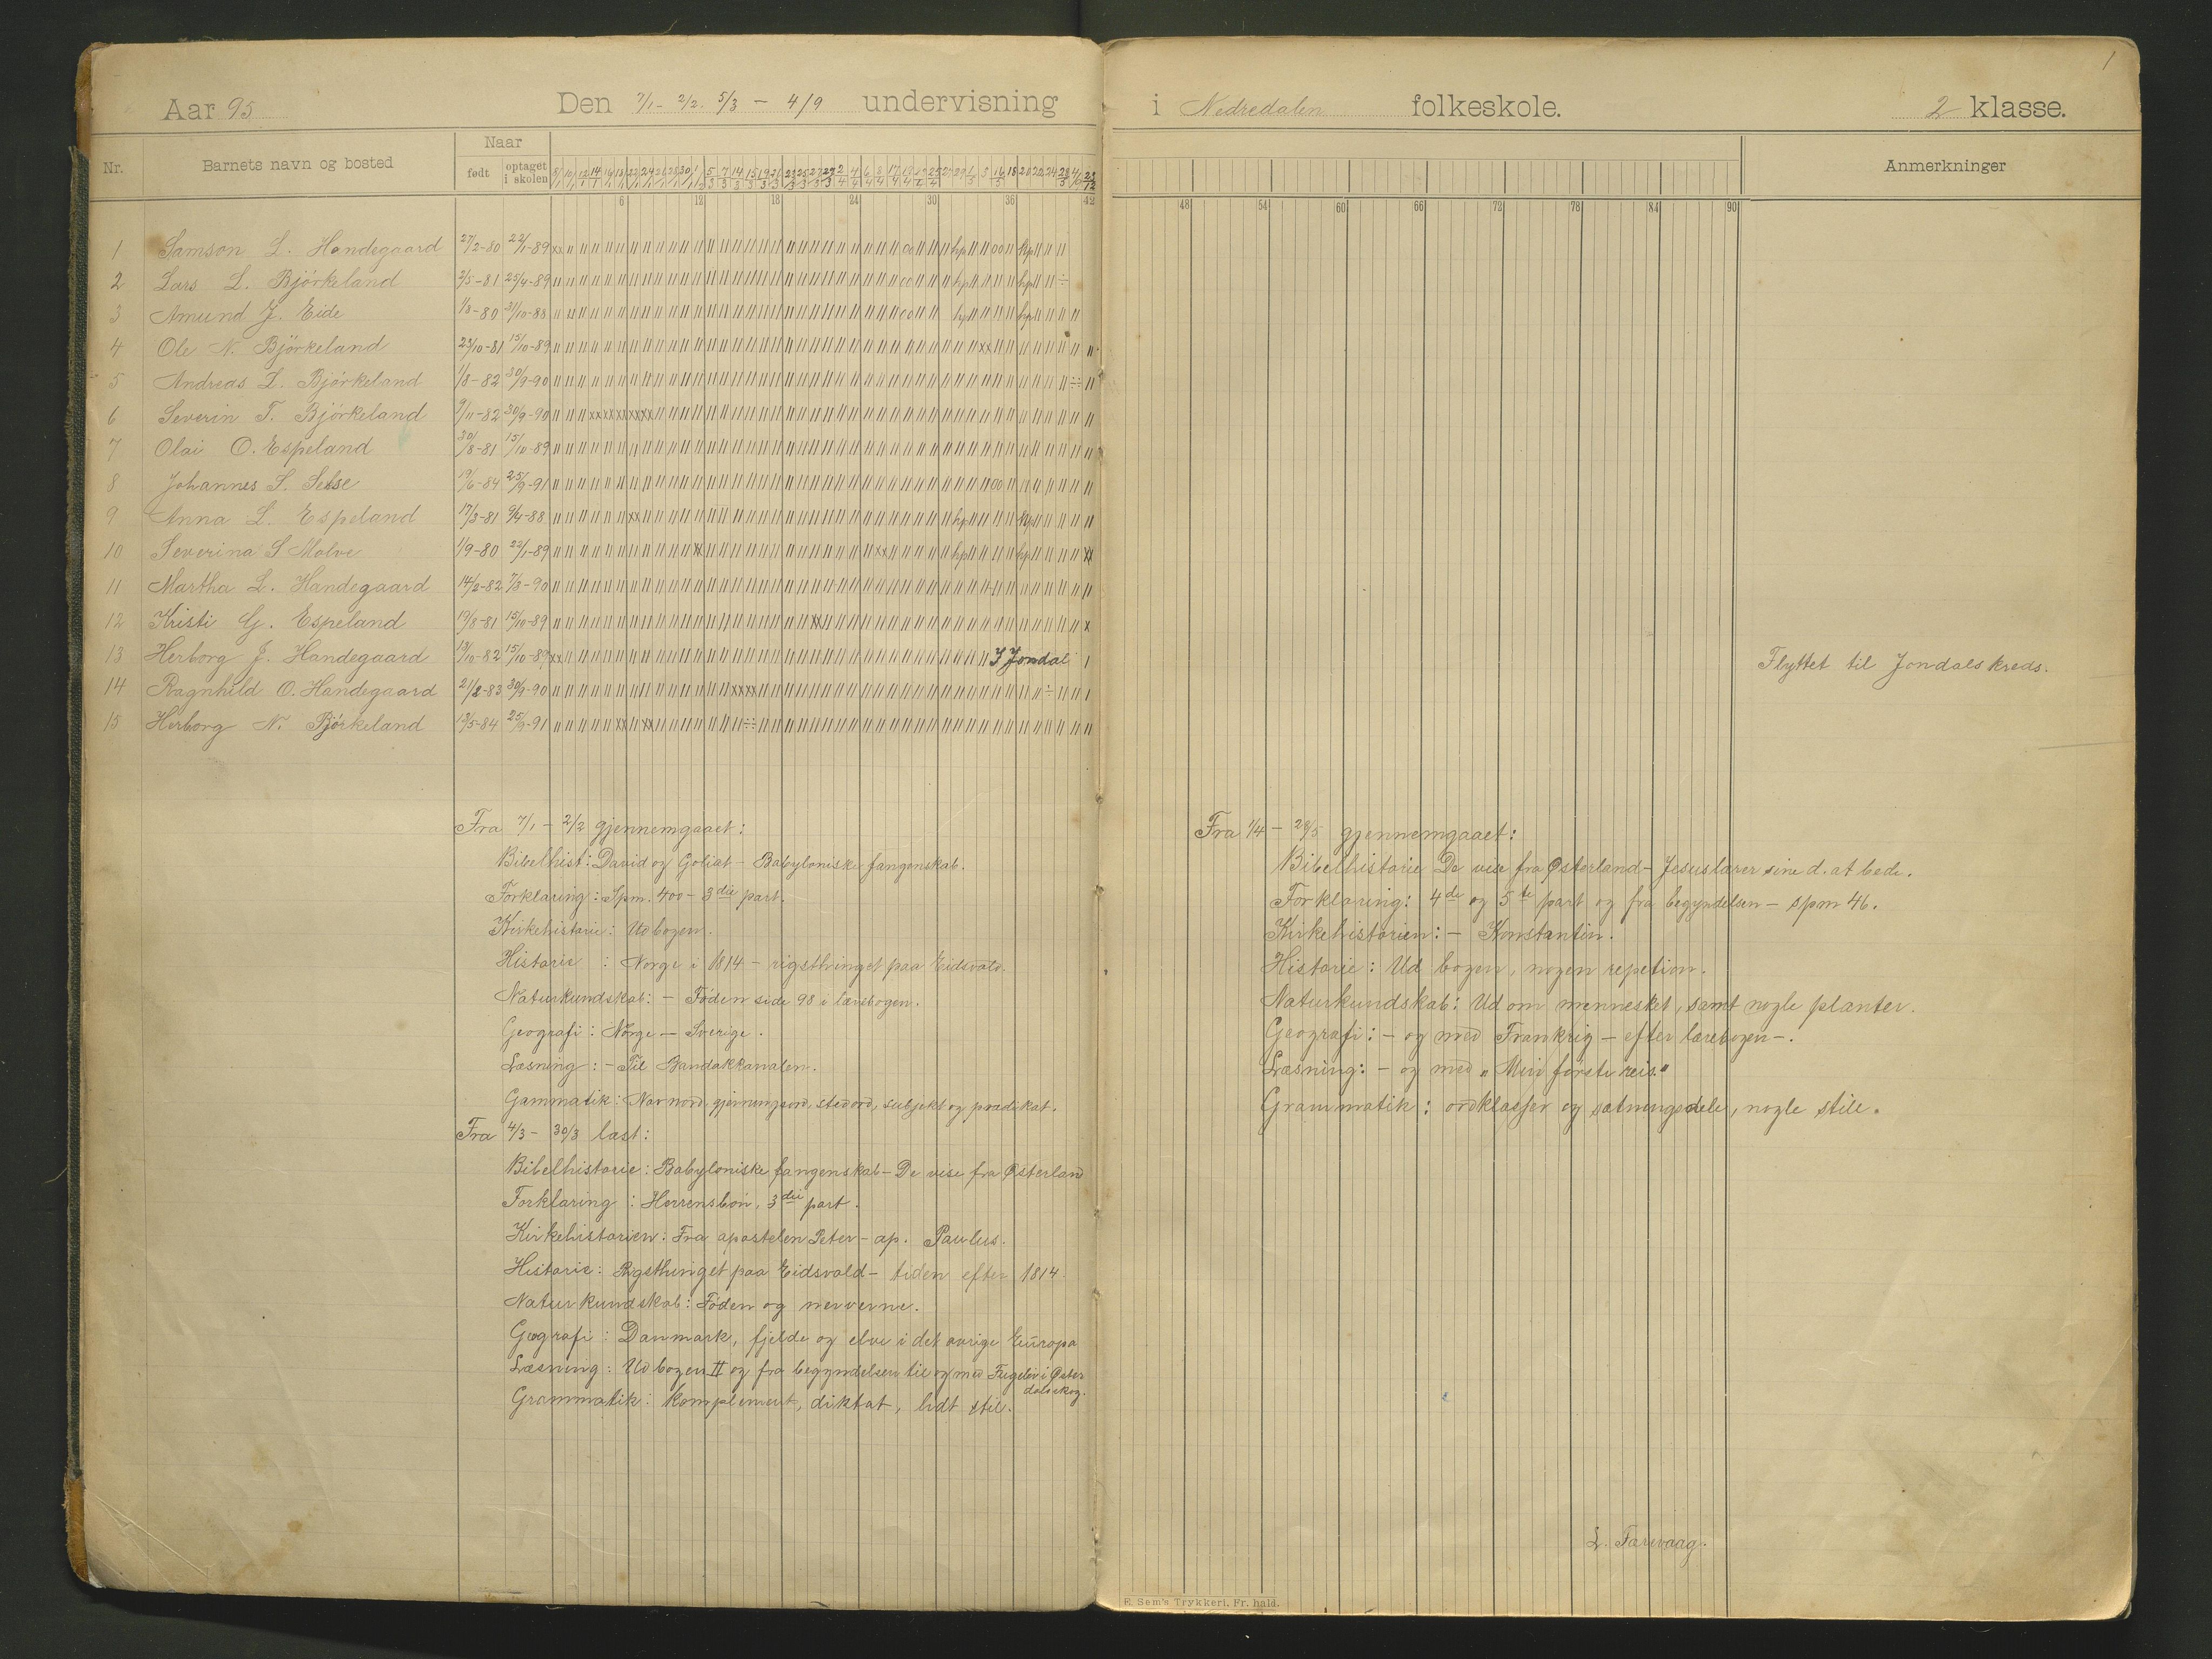 Aar 95 Den 7/1 - 2/2. 5/3 - 4/9 undervisning i Nedredalen folkeskole. 2 klasse.
1
Nr. Barnets navn og bosted Naar født optaget i skolen Anmerkninger
6 12 18 24 30 36 42 48 54 60 66 72 78 84 90
1 Samson L. Handegaard 27/2-80 22/1-89
2 Lars L. Bjørkeland 2/5-81 25/4-89
3 Amund J. Eide 1/8-80 31/10-88
4 Ole N. Bjørkeland 23/10-81 15/10-89
5 Andreas L. Bjørkeland 1/8-82 30/9-90
6 Severin T. Bjørkeland 9/11-82 30/9-90
7 Olai O. Espeland 30/8-81 15/10-89
8 Johannes S. Selse 19/6-84 25/9-91
9 Anna L. Espeland 17/3-81 9/4-88
10 Severina S Molve 1/9-80 22/1-89
11 Martha L. Handegaard 14/2-82 7/3-90
12 Kristi G. Espeland 19/8-81 15/10-89
13 Herborg J. Handegaard 19/10-82 15/10-89 I Jondal Flyttet til Jondals kreds.
14 Ragnhild O. Handegaard 21/2-83 30/9-90
15 Herborg N. Bjørkeland 13/5-84 25/9-91
Fra 7/1 - 2/2 gjennemgaaet:
Bibelhist: David og Goliat - Babyloniske fangenskab.
Forklaring: Spm. 400 - 3die part.
Kirkehistorie: Ud bogen.
Historie : Norge i 1814 - rigsthinget paa Eidsvold.
Naturkundskab: - Føden side 98 i læsebogen.
Geografi: Norge - Sverige.
Læsning: - Til Bandakkanalen.
Gammatik: Navnord, gjerningsord, stedord, subjekt og prædikat.
Fra 4/3 - 30/3 læst:
Bibelhistorie: Babyloniske fangenskab - De vise fra Østerland
Forklaring: Herrensbøn, 3die part.
Kirkehistorien: Fra apostelen Peter - ap. Paulus.
Historie: Rigsthinget paa Eidsvold - tiden efter 1814.
Naturkundskab: Føden og nerverne.
Geografi: Danmark, fjelde og elve i det øvrige Europa
Læsning: Ud bogen II og fra begyndelsen til og med Fugelev i Øster
dalsskog.
Grammatik: Komplement, diktat, lidt stil.
Fra 1/4 - 28/5 gjennemgaaet:
Bibelhistorie De vise fra Østerland - Jesus lærer sine d. at bede.
Forklaring: 4de og 5te part og fra begyndelsen - spm 46.
Kirkehistorien: - Konstantin.
Historie: Ud bogen, nogen repetion.
Naturkundskab: Ud om mennesket, samt nogle planter.
Geografi: - og med Frankrig - efter lærebogen -.
Læsning: - og med "Min første reis."
Grammatik: ordklasser og sætningsdele, nogle stile.
L. Tarevaag.
E. Sem's Trykkeri, Fr. hald.